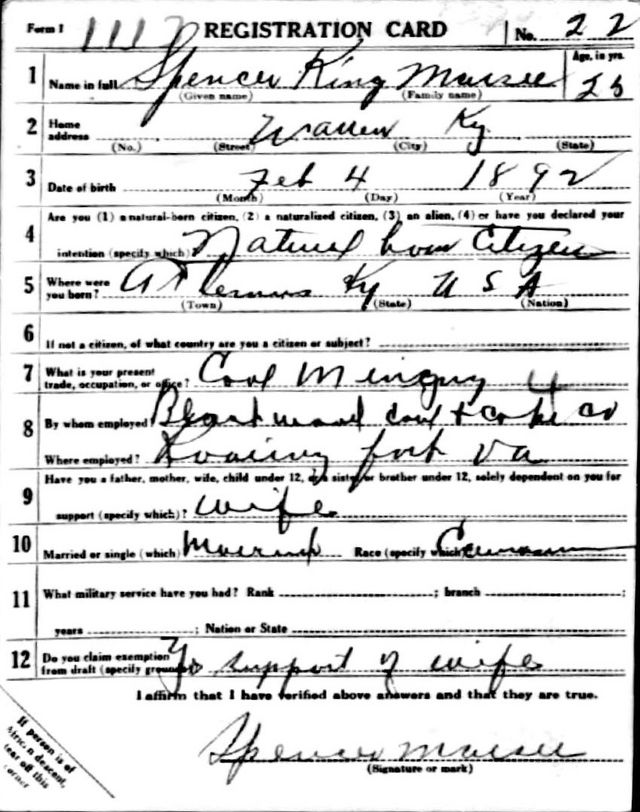 Form 1 1117 REGISTRATION CARD No. 22
1 Name in full Spencer King Marsee Age, in yrs. 25
(Given name) (Family name)
2 Home address Warren Ky
(No.) (Street) (City) (State)
3 Date of birth Feb 4 1892
(Month) (Day) (Year)
4 Are you (1) a natural-born citizen, (2) a naturalized citizen, (3) an alien, (4) or have you declared your
intention (specify which)? Natural born Citizen
5 Where were you born? Ky U S A
(Town) (State) (Nation)
6 If not a citizen, of what country are you a citizen or subject?
7 What is your present trade, occupation, or office? Coal Mining 4
8 By whom employed? coal & coke co
Where employed? Roaring fork Va
9 Have you a father, mother, wife, child under 12, or a sister or brother under 12, solely dependent on you for
support (specify which)? wife
10 Married or single (which)? Married Race (specify which)?
11 What military service have you had? Rank ; branch ;
years ; Nation or State
12 Do you claim exemption from draft (specify grounds)? support of wife
I affirm that I have verified above answers and that they are true.
Spencer Marsee
(Signature or mark)
If person is of
African descent,
tear off this
corner